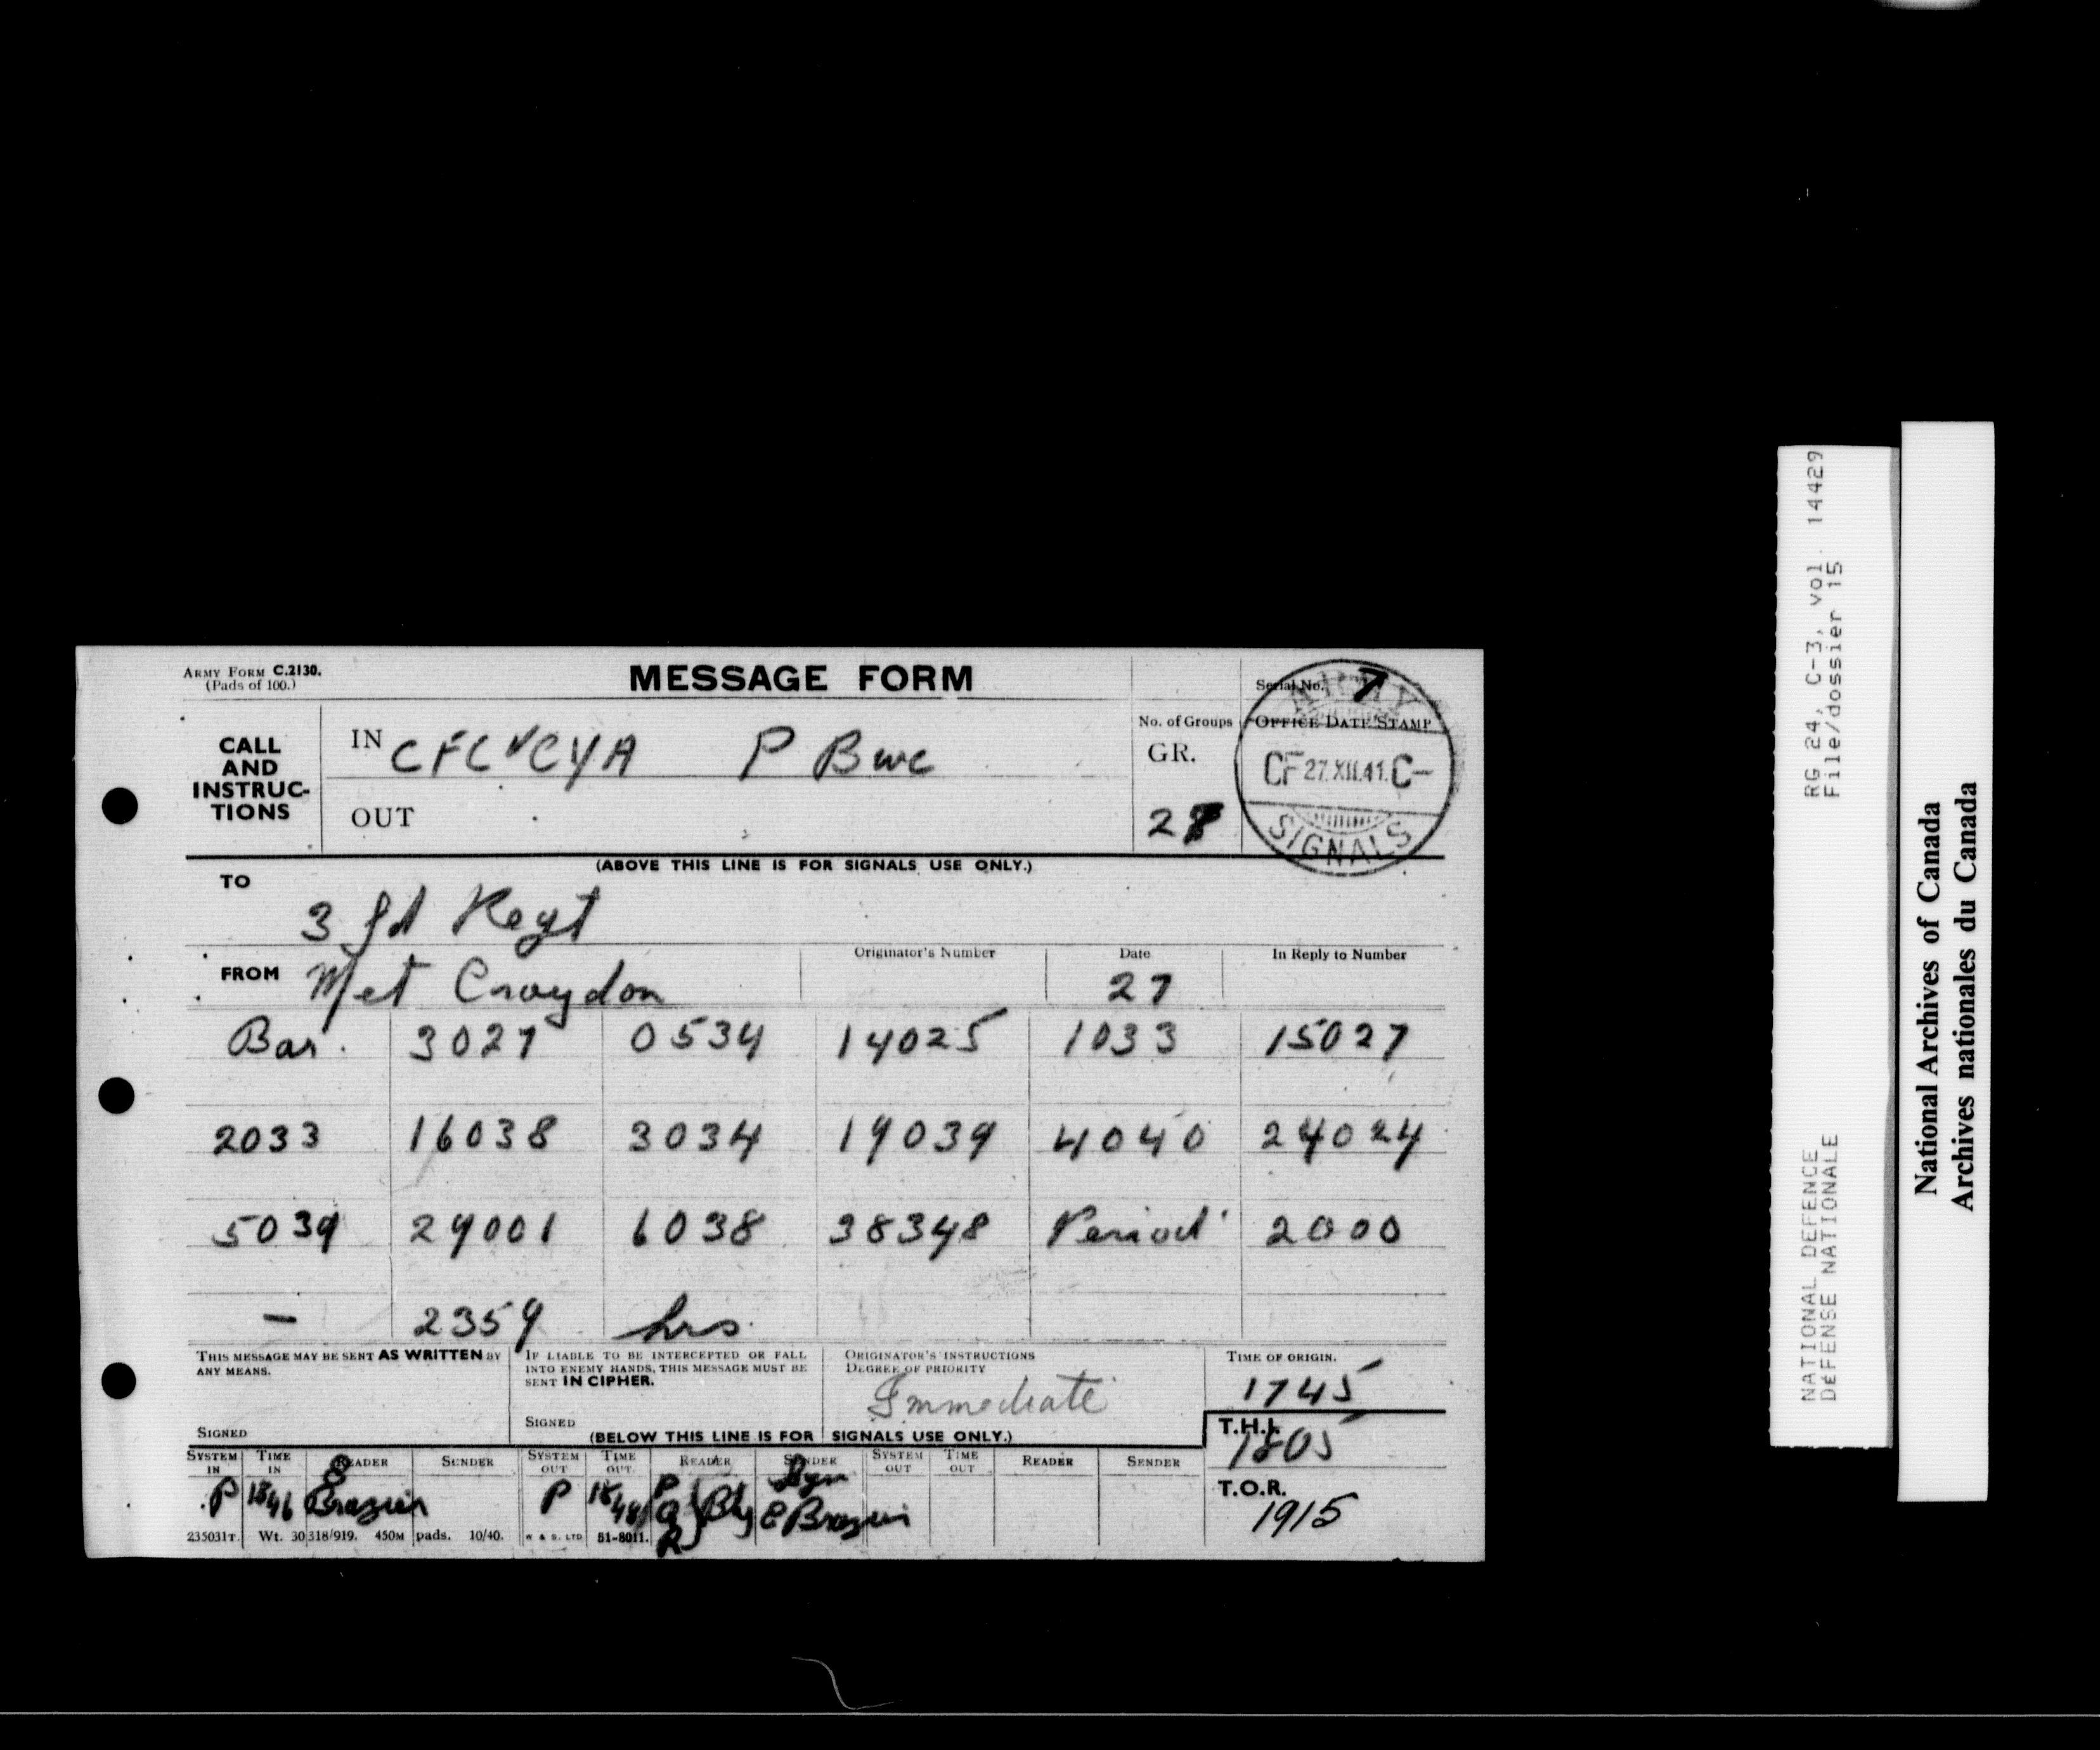 ARMY FORM C.2130.
(Pads of 100.)
MESSAGE FORM
Serial No. 7
CALL AND INSTRUC-TIONS
IN CFC V CYA P Bwc
OUT
No. of Groups
GR.
28
OFFICE DATE STAMP
ARMY
CF 27.XII.41.C-
SIGNALS
(ABOVE THIS LINE IS FOR SIGNALS USE ONLY.)
TO 3 fd Regt
FROM Met Croydon
Originator's Number
Date 27
In Reply to Number
Bar. 3027 0534 14025 1033 15027
2033 16038 3034 19039 4040 24024
5039 29001 6038 38348 Period 2000
- 2359 hrs.
THIS MESSAGE MAY BE SENT AS WRITTEN BY
ANY MEANS.
SIGNED
IF LIABLE TO BE INTERCEPTED OR FALL
INTO ENEMY HANDS, THIS MESSAGE MUST BE
SENT IN CIPHER.
SIGNED
ORIGINATOR'S INSTRUCTIONS
DEGREE OF PRIORITY
Immediate
TIME OF ORIGIN.
1745
(BELOW THIS LINE IS FOR SIGNALS USE ONLY.)
T.H.I.
1805
T.O.R.
1915
SYSTEM IN TIME IN READER SENDER SYSTEM OUT TIME OUT. READER SENDER SYSTEM OUT TIME OUT READER SENDER
P 1846 Brazier P 1848 P Q R } Bty E Brazier
235031T. Wt. 30318/919. 450M pads. 10/40. W & S. LTD 51-8011.
RG 24, C-3, vol. 14429
File/dossier 15
NATIONAL DEFENCE
DEFENSE NATIONALE
National Archives of Canada
Archives nationales du Canada